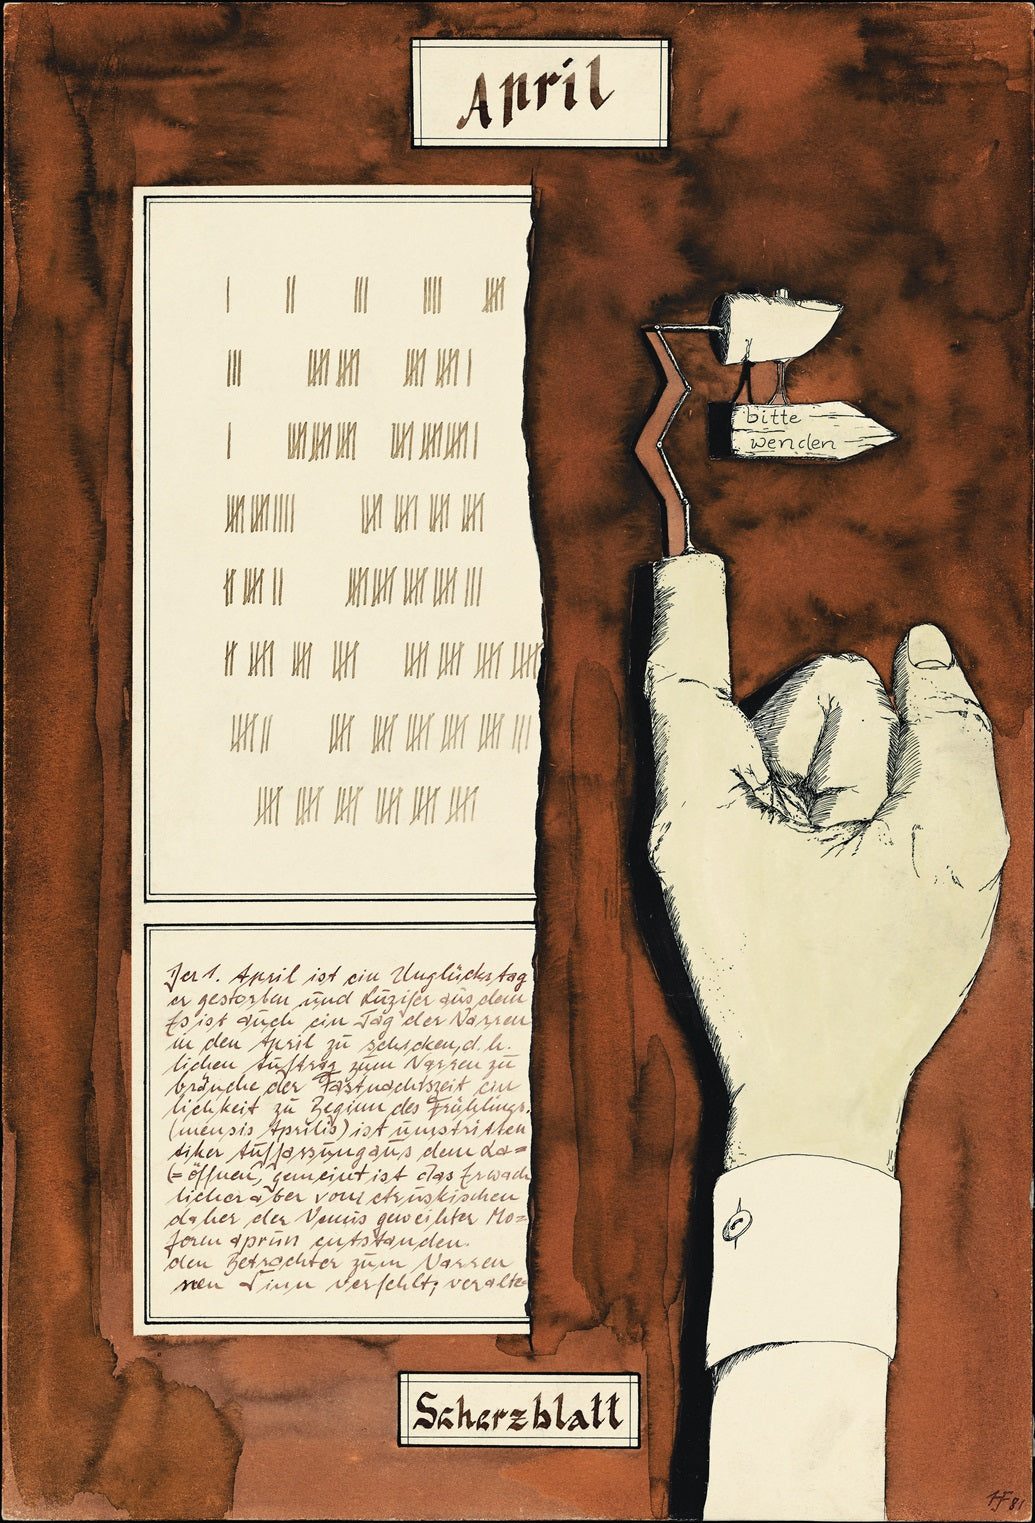 April
bitte
wenden
Der 1. April ist ein Unglückstag
er gestorben und Luzifer aus dem
Es ist auch ein Tag der Narren
in den April zu schicken, d. h.
lichen Auftrag zum Narren zu
bräuche der Fastnachtszeit ein
lichkeit zu Beginn des Frühlings.
(mensis Aprilis) ist umstritten
tiker Auffassung aus dem La=
(= öffnen, gemeint ist das Erwach
licher aber vom etruskischen
daher der Venus geweihter Mo=
form aprun entstanden.
den Betrachter zum Narren
nen Sinn verfehlt; veralte=
Scherzblatt
HF 81